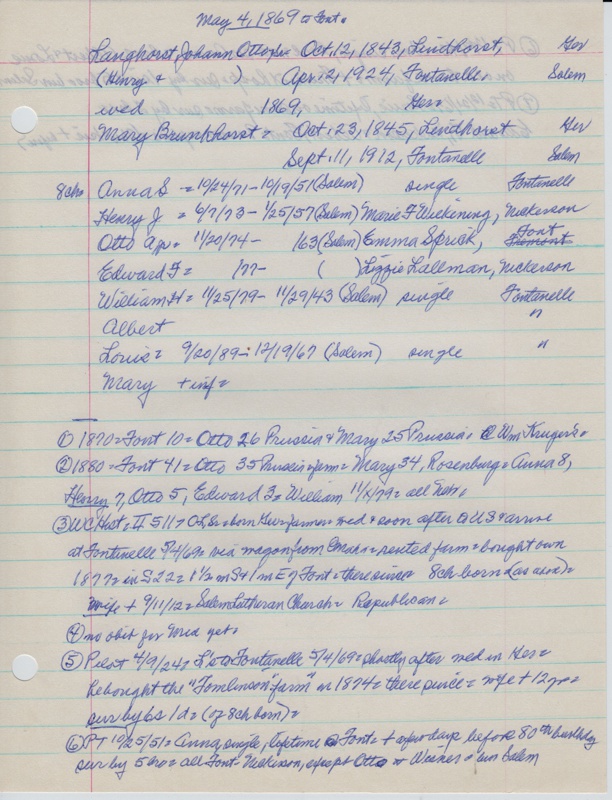 May 4, 1869 to Font.
Langhorst, Johann Otto = Oct. 12, 1843, Lindhorst, Ger
(Henry + ) Apr. 2, 1924, Fontanelle. Salem
wed 1869, Ger.
Mary Brunkhorst = Oct. 23, 1845, Lindhorst Ger
Sept. 11, 1912, Fontanelle Salem
8chn Anna S = 10/24/71 - 10/9/51 (Salem) single Fontanelle
Henry J = 6/7/73 - 1/25/57 (Salem) Marie F Wickening, Nickerson
Otto Apr = 11/20/74 - /63 (Salem) Emma Sprick, Font
Edward F = /77 - ( ) Lizzie Lallman, Nickerson
William H = 11/25/79 - 11/29/43 (Salem) single Fontanelle
Albert "
Louis = 9/20/89 - 12/19/67 (Salem) single "
Mary + inf =
① 1870 = Font 10 = Otto 26 Prussia + Mary 25 Prussia. @ Wm Kruger's.
② 1880 = Font 41 = Otto 35 Prussia = farm = Mary 34, Rosenburg = Anna 8,
Henry 7, Otto 5, Edward 3 = William 11/x/79 = all Neb.
③ WC Hist = II 511 = born Ger = farmer = wed + soon after to US + arrive
at Fontanelle 5/4/69 = via wagon from Omaha = rented farm = bought own
1877 = in S22 = 1½ m S + 1 m E of Font = there since = 8ch born (as above) =
Wife + 9/11/12 = Salem Lutheran Church = Republican =
④ no obit for Mrd yet =
⑤ Pilot 4/9/24 = L to Fontanelle 5/4/69 = shortly after wed in Ger =
he bought the "Tomlinson" farm" in 1874 = there since = wife + 12 yr =
sur by 6s 1d = (of 8ch born) =
⑥ PT 10/25/51 = Anna, single, lifetime @ Font = + days before 80th birthday
sur by 5 bro = all Font - Nickerson, except Otto bur Salem